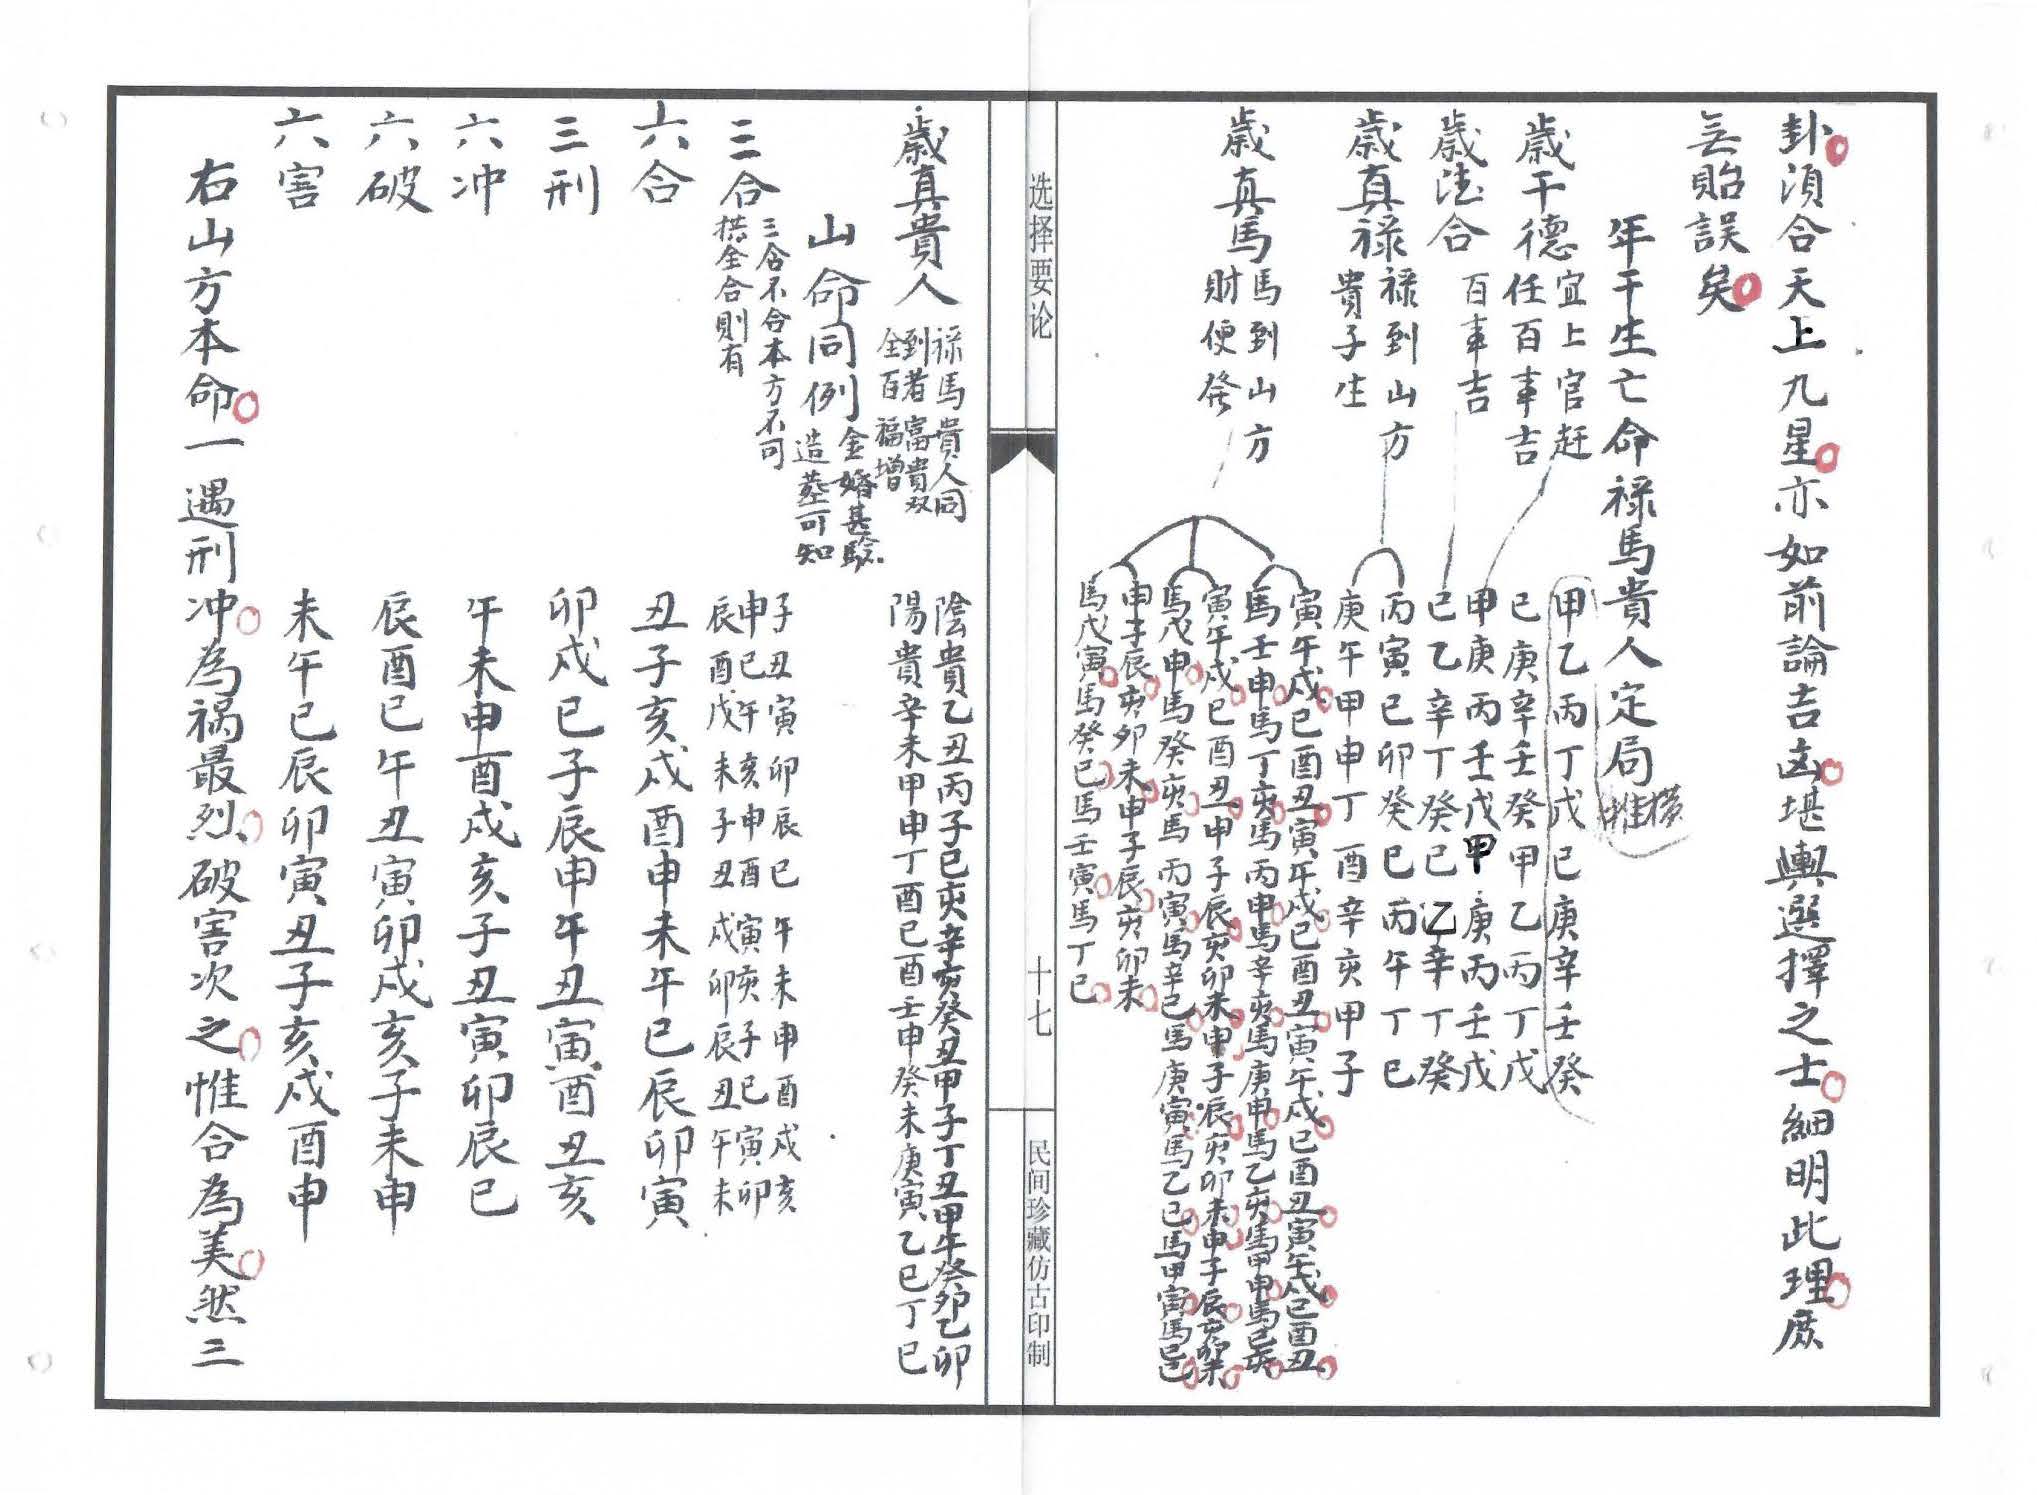 卦須合天上九星亦如前論吉凶堪輿選擇之士細明此理庶
無貽誤矣
年干生亡命祿馬貴人定局
橫推
甲乙丙丁戊己庚辛壬癸
歲干德
宜上官赶
任百事吉
己庚辛壬癸甲乙丙丁戊
歲德合
百事吉
甲庚丙壬戊甲庚丙壬戊
己乙辛丁癸己乙辛丁癸
歲真祿
祿到山方
貴子生
丙寅己卯癸巳丙午丁巳
庚午甲申丁酉辛亥甲子
歲真馬
馬到山方
財便發
寅午戌巳酉丑寅午戌巳酉丑寅午戌巳酉丑寅午戌巳酉丑
馬壬申馬丁亥馬丙申馬辛亥馬庚申馬乙亥馬甲申馬己亥
寅午戌巳酉丑申子辰亥卯未申子辰亥卯未申子辰亥卯未
馬戊申馬癸亥馬丙寅馬辛巳馬庚寅馬乙巳馬甲寅馬己巳
申子辰亥卯未申子辰亥卯未
馬戊寅馬癸巳馬壬寅馬丁巳
选择要论
十七
民间珍藏仿古印制
歲真貴人
祿馬貴人同
到者富貴双
全百福增
陰貴乙丑丙子己亥辛亥癸丑甲子丁丑甲午癸卯己卯
陽貴辛未甲申丁酉己酉壬申癸未庚寅乙巳丁巳
山命同例
金婚甚驗
造葬可知
三合
三合不合本方不可
拱全合則有
子丑寅卯辰巳午未申酉戌亥
申巳午亥申酉寅亥子巳寅卯
辰酉戌未子丑戌卯辰丑午未
六合
丑子亥戌酉申未午巳辰卯寅
三刑
卯戌巳子辰申午丑寅酉丑亥
六冲
午未申酉戌亥子丑寅卯辰巳
六破
辰酉巳午丑寅卯戌亥子未申
六害
未午巳辰卯寅丑子亥戌酉申
右山方本命一遇刑冲為禍最烈破害次之惟合為美然三